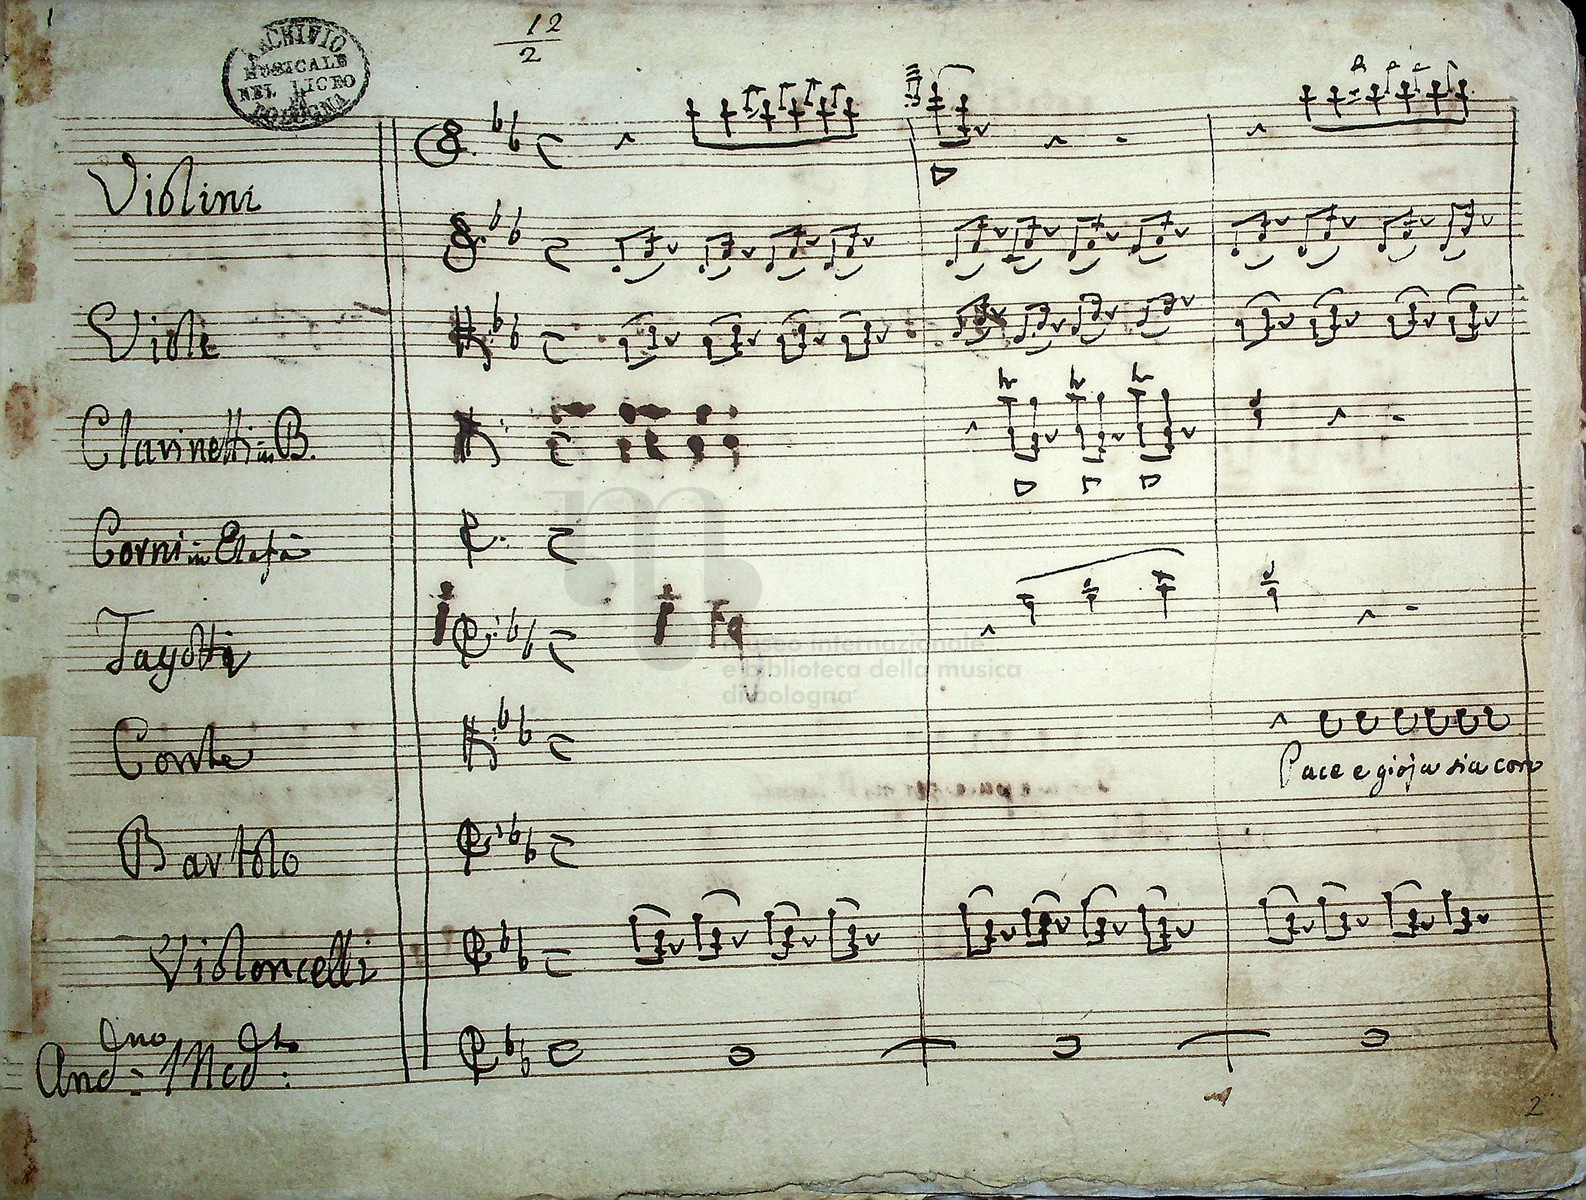 1
12
2
ARCHIVIO
MUSICALE
NEL LICEO
BOLOGNA
Violini
Viole
Clarinetti in B.
Corni in Elafà
Fagotti
Conte
Pace e gioja sia con
Bartolo
Violoncelli
And.no Mod.to
museo internazionale
e biblioteca della musica
di bologna
2